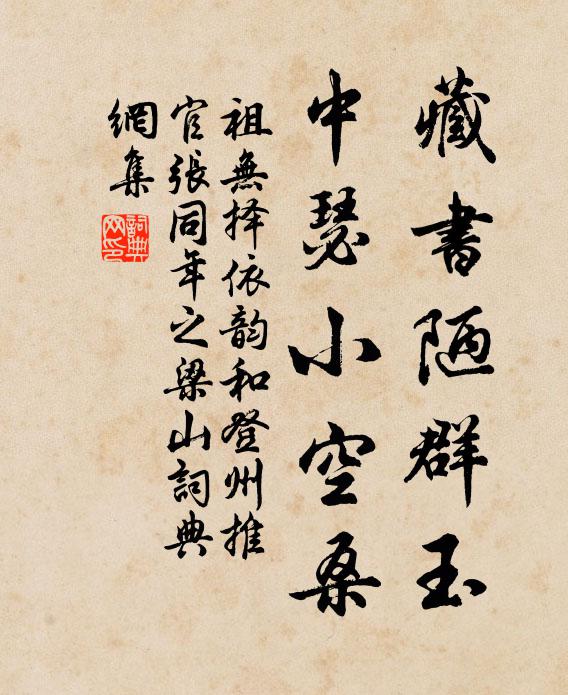 藏書陋群玉
中瑟小空桑
祖無择依韵和登州推
官張同年之梁山詞典
網集
詞典
网印